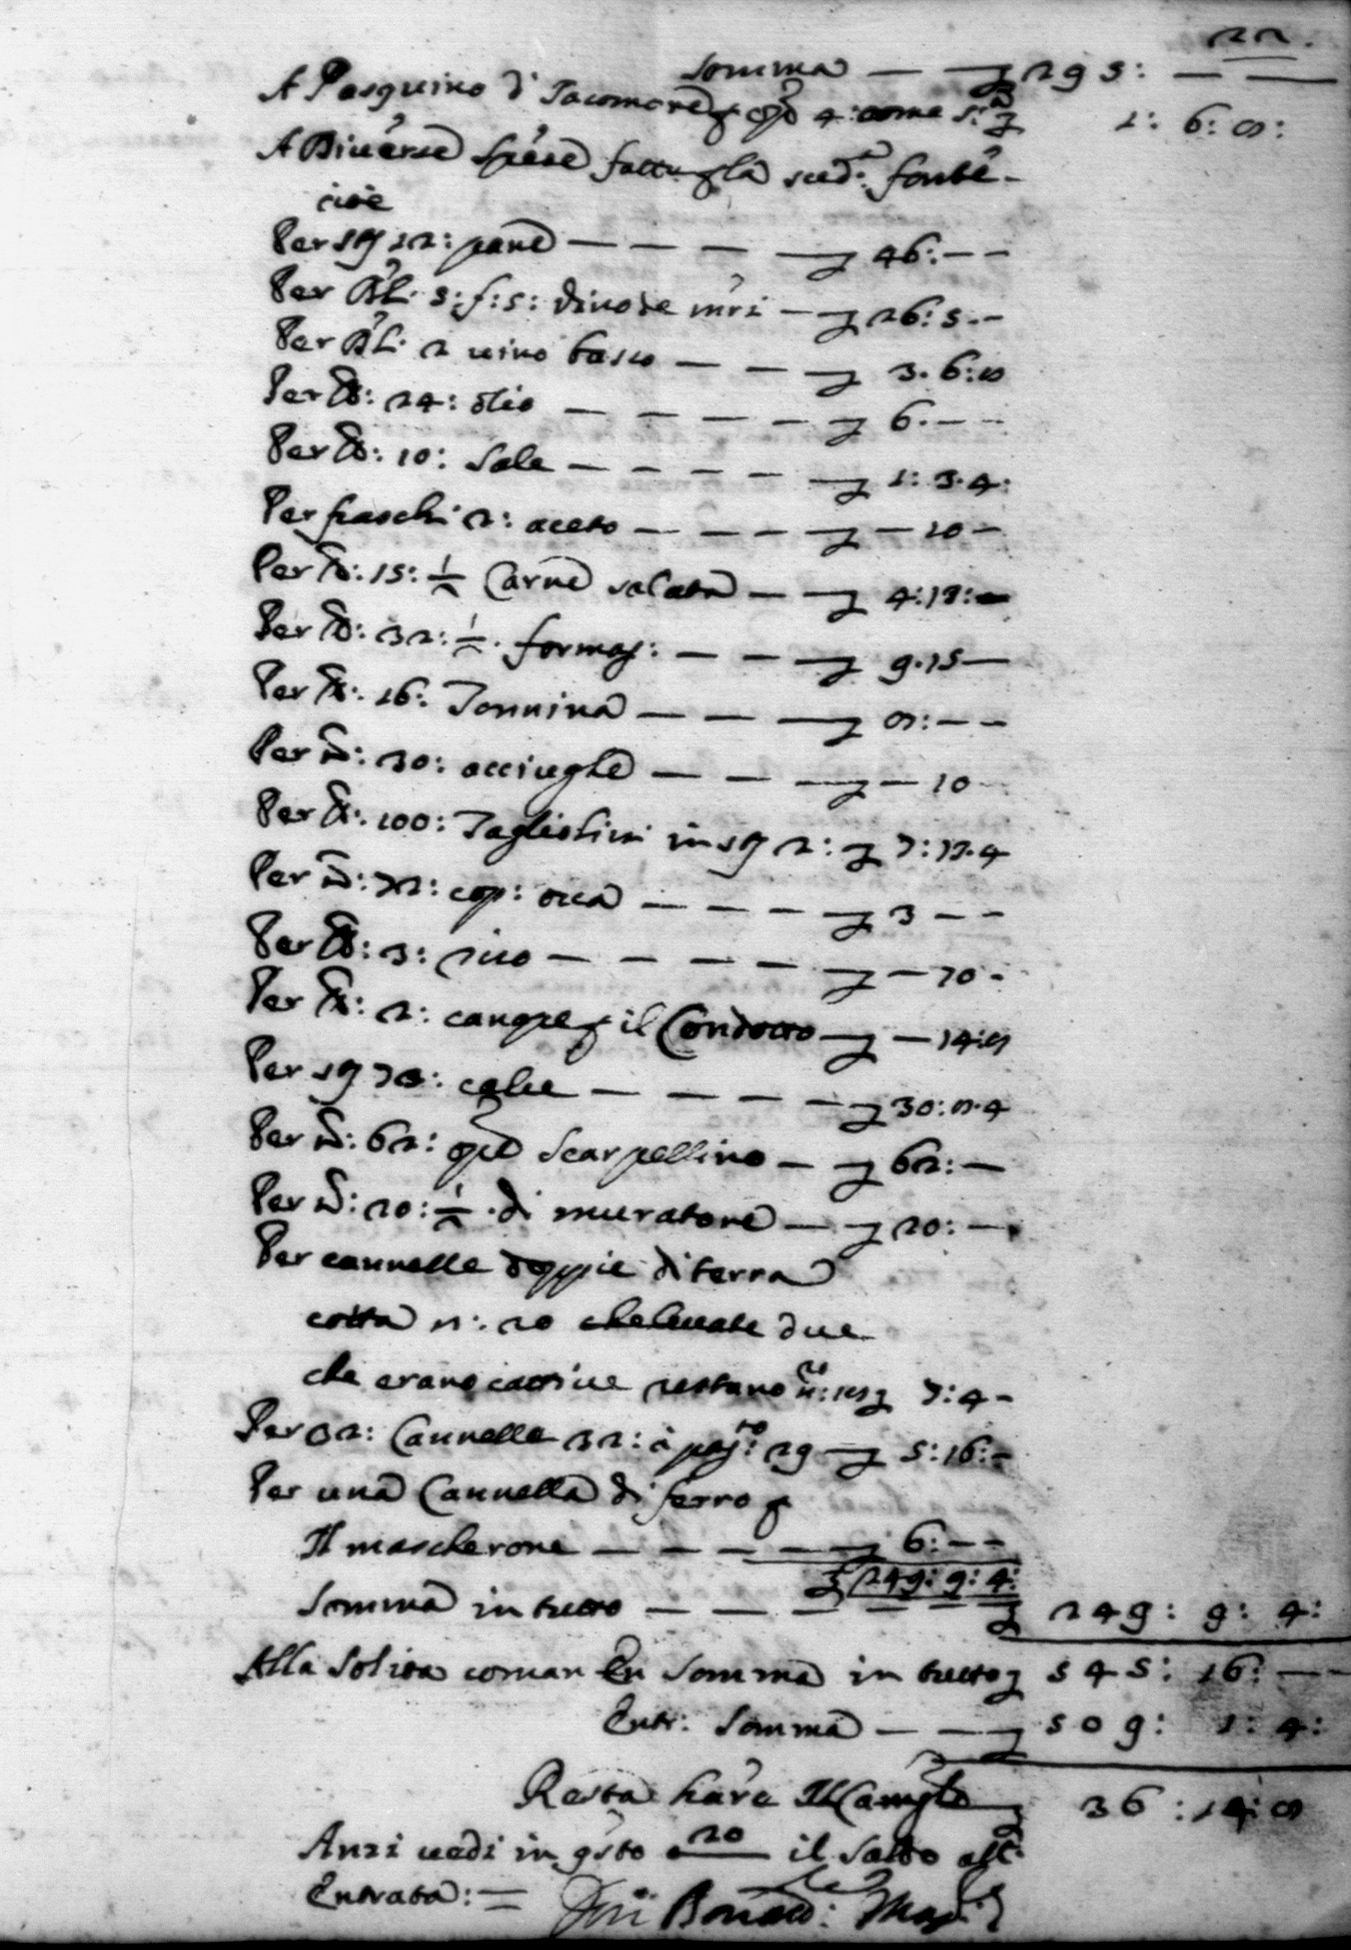 22.
Somma — — 295: — —
A Pasquino di Jacomo re p op 4: come s.a 1: 6: 8:
A Diuerse Spese fatte p la sud.a fonte
cioè
Per sg 12: pane — — — — 46: — —
Per BL. 3: f: 5: di noste mri — 26: 5. —
Per BL. 2 uino basso — — — 3. 6: 8
Per lb: 24: olio — — — — — 6. — —
Per lb: 10: Sale — — — — — 1: 3. 4:
Per fiaschi 2: aceto — — — — — 10 —
Per lb: 15: ½ Carne salata — — 4: 18: —
Per lb: 32: ½. formag: — — — 9. 15 —
Per lb: 16: Tonnina — — — 8: — —
Per n: 30: acciughe — — — — 10
Per lb: 100: Tagliolini in sg 2: 7: 17. 4
Per n: 72: cop: oua — — — — 3 — —
Per lb: 3: riso — — — — — — 10 —
Per lb: 2: canape p il Condotto — — 14: 8
Per sg 78: calce — — — — 30: 8. 4
Per n: 62: ope Scarpellino — 62: —
Per n: 20: ½. di muratore — 20: —
Per cannelle doppie di terra
cotta n: 20 che leuate due
che erano cattiue restano n: 18 7: 4 —
Per 32: Cannelle 32: à pag: 29 — 5: 16: —
Per una Cannella di ferro p
Il mascherone — — — — — 6: — —
249: 9: 4:
Somma in tutto — — — — — — 249: 9: 4:
Alla Solita coman En Somma in tutto 545: 16: — —
Entr: Somma — — 509: 1: 4:
Resta hare Il Camgo 36: 14: 8
Anzi uedi in qsto 20 il Saldo all
Entrata: =